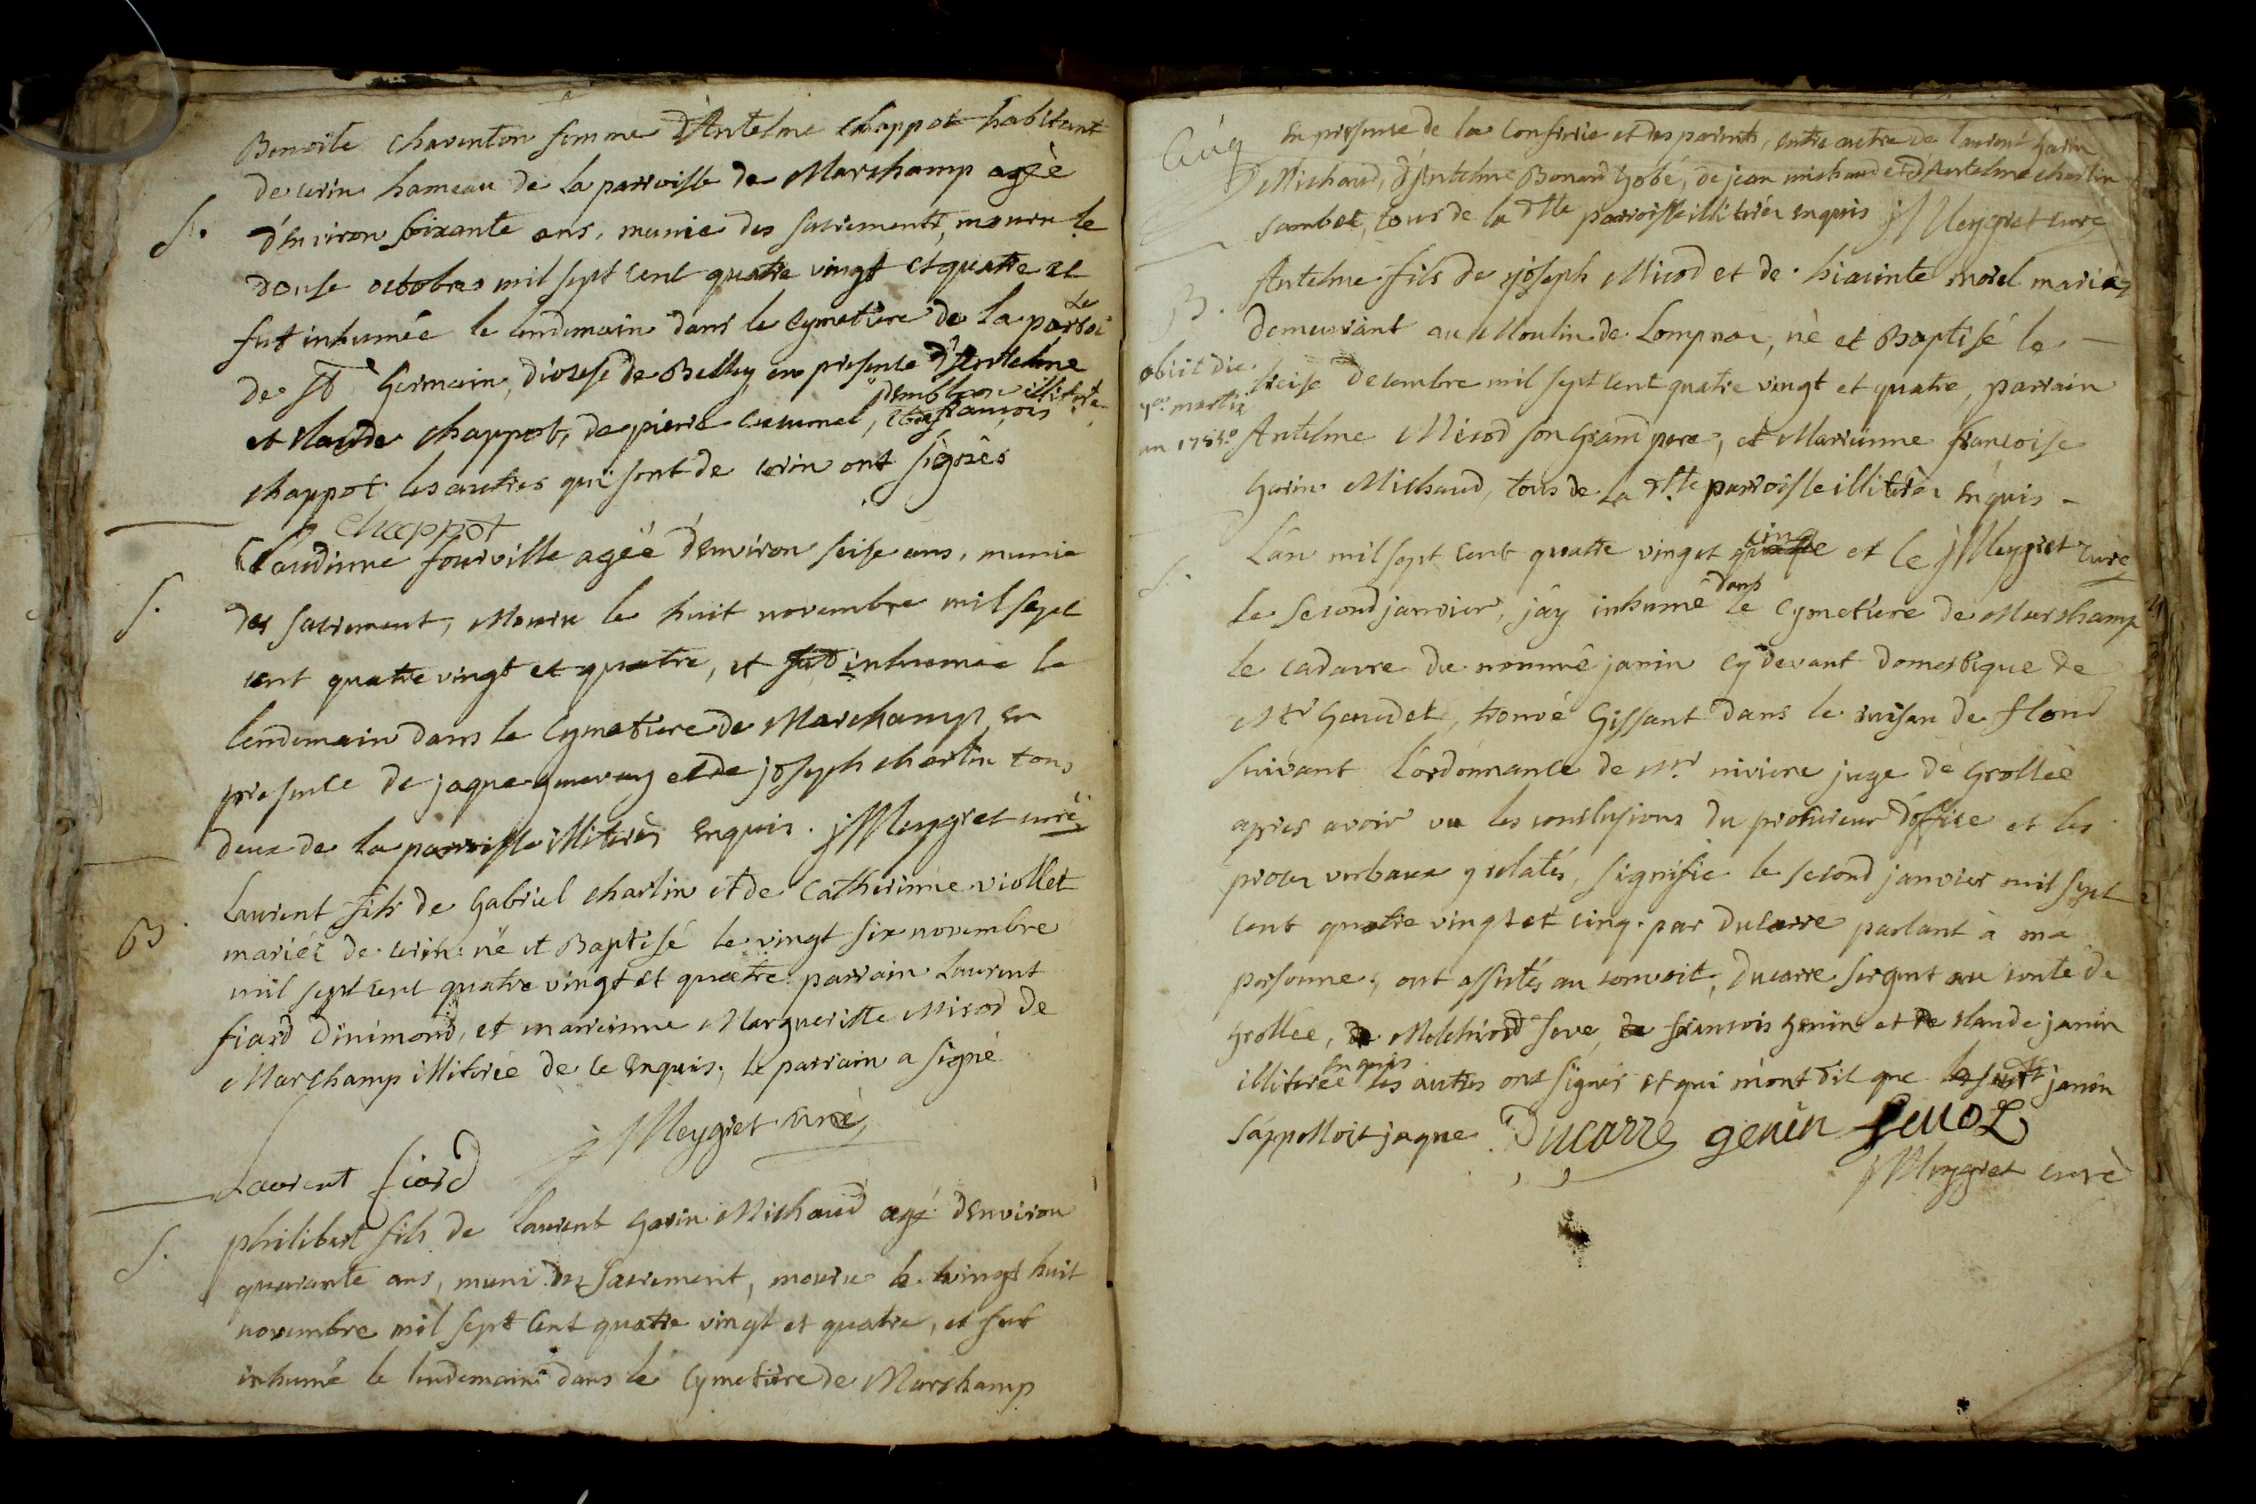 Benoite Charenton femme d'Antelme Chappot habitant
de cerin hameau de la parroisse de Marchamp agèe
S. d'Environ soixante ans, munie des sacrements, mouru le
douse octobre mil sept cent quatre vingt et quatre et
fut inhumée le lendemain dans le cymetiere de la
de St Germain, diocese de Belley en presence d'Antelme
et Claude chappot, de pierre illiterés
chappot les autres qui sont de cerin ont signés
Chappot
Claudinne fourville agéé d'Environ seise ans, munie
S. des sacrement, Mouru le huit novembre mil sept
cent quatre vingt et quatre, et fut inhumée le
lendemain dans le Cymetiere de Marchamp en
presence de jaque et de joseph charlin tous
deux de la parroisse illiterés Enquis. j Meygret curé
Laurent fils de Gabriel charlin et de Catherinne viollet
B. mariés de cerin né et Baptisé le vingt six novembre
mil sept cent quatre vingt et quatre parrain Laurent
fiard Dinimond, et marrienne Margueritte Micod de
Marchamp illiterée de ce Enquis, le parrain a signé
j Meygret curé
Laurent fiard
S. philibert fils de laurent garin Michaud agé d'Environ
quarante ans, muni des sacrement, mouru le vingt huit
novembre mil sept cent quatre vingt et quatre, et fut
inhumé le lendemain dans le Cymetiere de Marchamp
En presence de la Confrerie et des parents, entre autre de laurent garin
Michaud, d'Antelme Bonard Gobé, de jean michaud et d'Antelme charlin
sambet, tous de la dtte parroisse illiterés enquis j Meygret curé
B. Antelme fils de joseph Micod et de hiacinte morel mariés
demeurant au Moulin de Lompnas, né et Baptisé le
obiit die
treise decembre mil sept cent quatre vingt et quatre, parrain
martii
an 1785
Antelme Micod son grand pere, et Marrienne francoise
garin Michaud, tous de la dtte parroisse illiterés Enquis
j Meygret curé
S. L'an mil sept cent quatre vingt et quatre cinq et le
le second janvier, j'ay inhumé dans le Cymetiere de Marchamp
le cadavre du nommé janin cy devant domestique de
Mr Gaudet, trouvé Gissant dans le ruisau de flond
suivant L'ordonnance de Mr niviere juge de Grollée
apres avoir vu les conclusions du procureur d'office et les
proces verbaux y relatés, signifie le second janvier mil sept
cent quatre vingt et cinq par Ducarre parlant à ma
personne, ont assistés au convoit, Ducarre sergent au conte de
Grollée, de Melchiord seve, de francois Genin et de Claude janin
illiterée enquis les autres ont signés et qui m'ont dit que le dtt janin
s'appelloit jaque. Ducarre genin
j Meygret curè